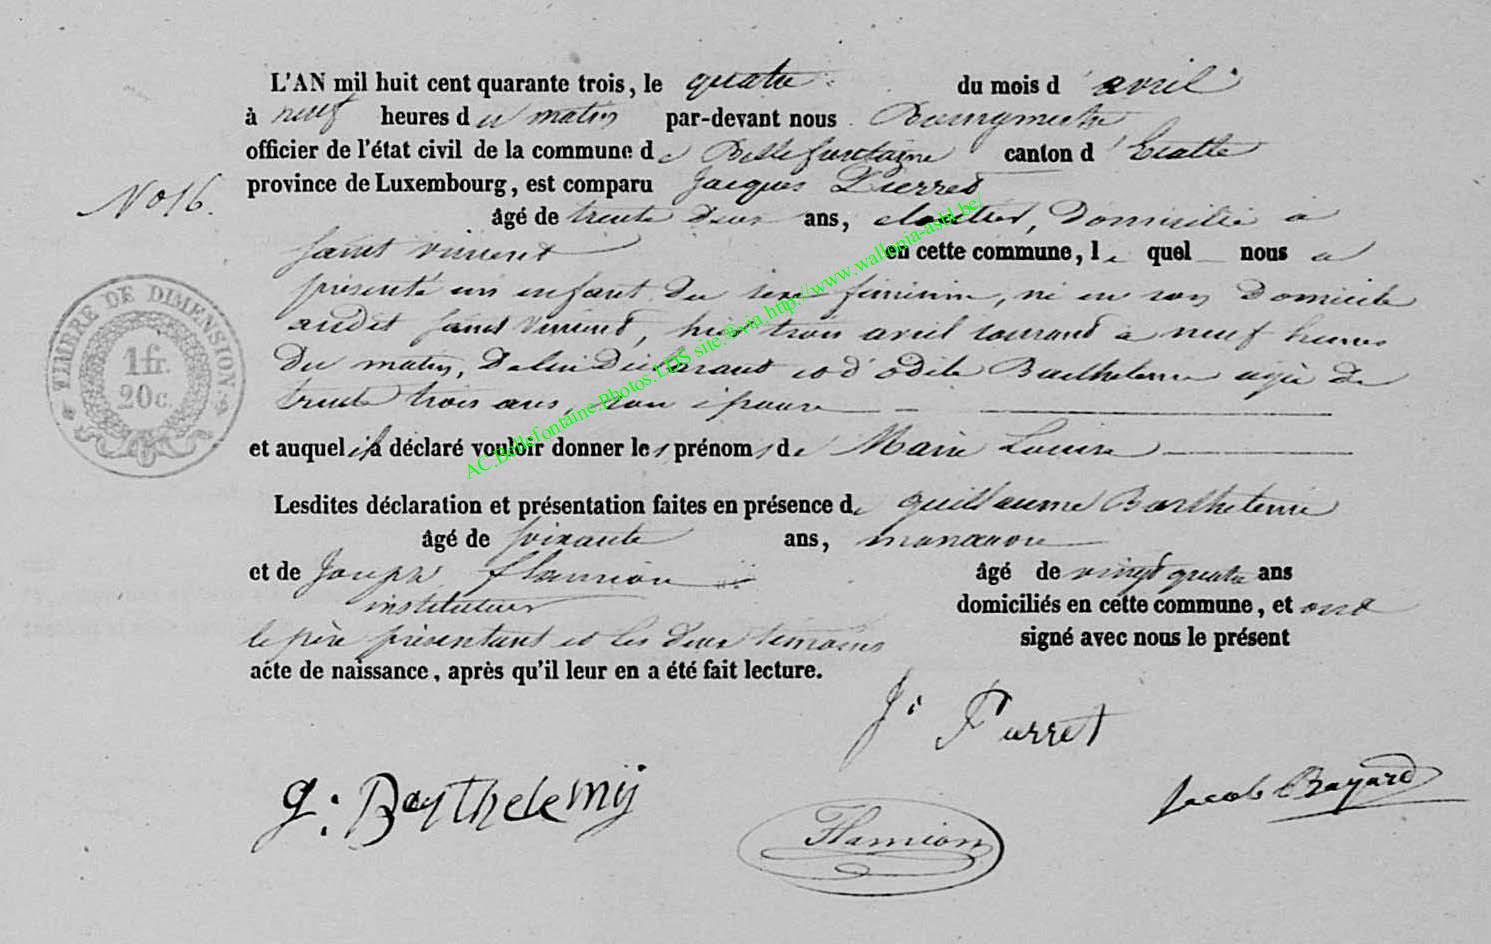 L'AN mil huit cent quarante trois, le quatre du mois d'avril
à neuf heures du matin par-devant nous Bourgmestre
officier de l'état civil de la commune de Bellefontaine canton d'Etalle
No 16. province de Luxembourg, est comparu Jacques Pierret
âgé de trente deux ans, cloutier, domicilié à
saint vincent en cette commune, lequel nous a
présenté un enfant du sexe féminin, né en son domicile
audit saint vincent, hier trois avril courant à neuf heures
du matin, de lui déclarant et d'odile Barthelemi agée de
trente trois ans, son épouse
et auquel il a déclaré vouloir donner les prénoms de Marie Louise
Lesdites déclaration et présentation faites en présence de guillaume Barthelemi
âgé de soixante ans, manœuvre
et de Joseph flamion âgé de vingt quatre ans
instituteur domiciliés en cette commune, et ont
le père présentant et les deux témoins signé avec nous le présent
acte de naissance, après qu'il leur en a été fait lecture.
J. Pierret
g. Barthelemÿ
Flamion
Jacob Bayard
TIMBRE DE DIMENSION
1 fr.
20 c.
AC.Bellefontaine.Photos.LDS site.®via http://www.wallonia-asbl.be/